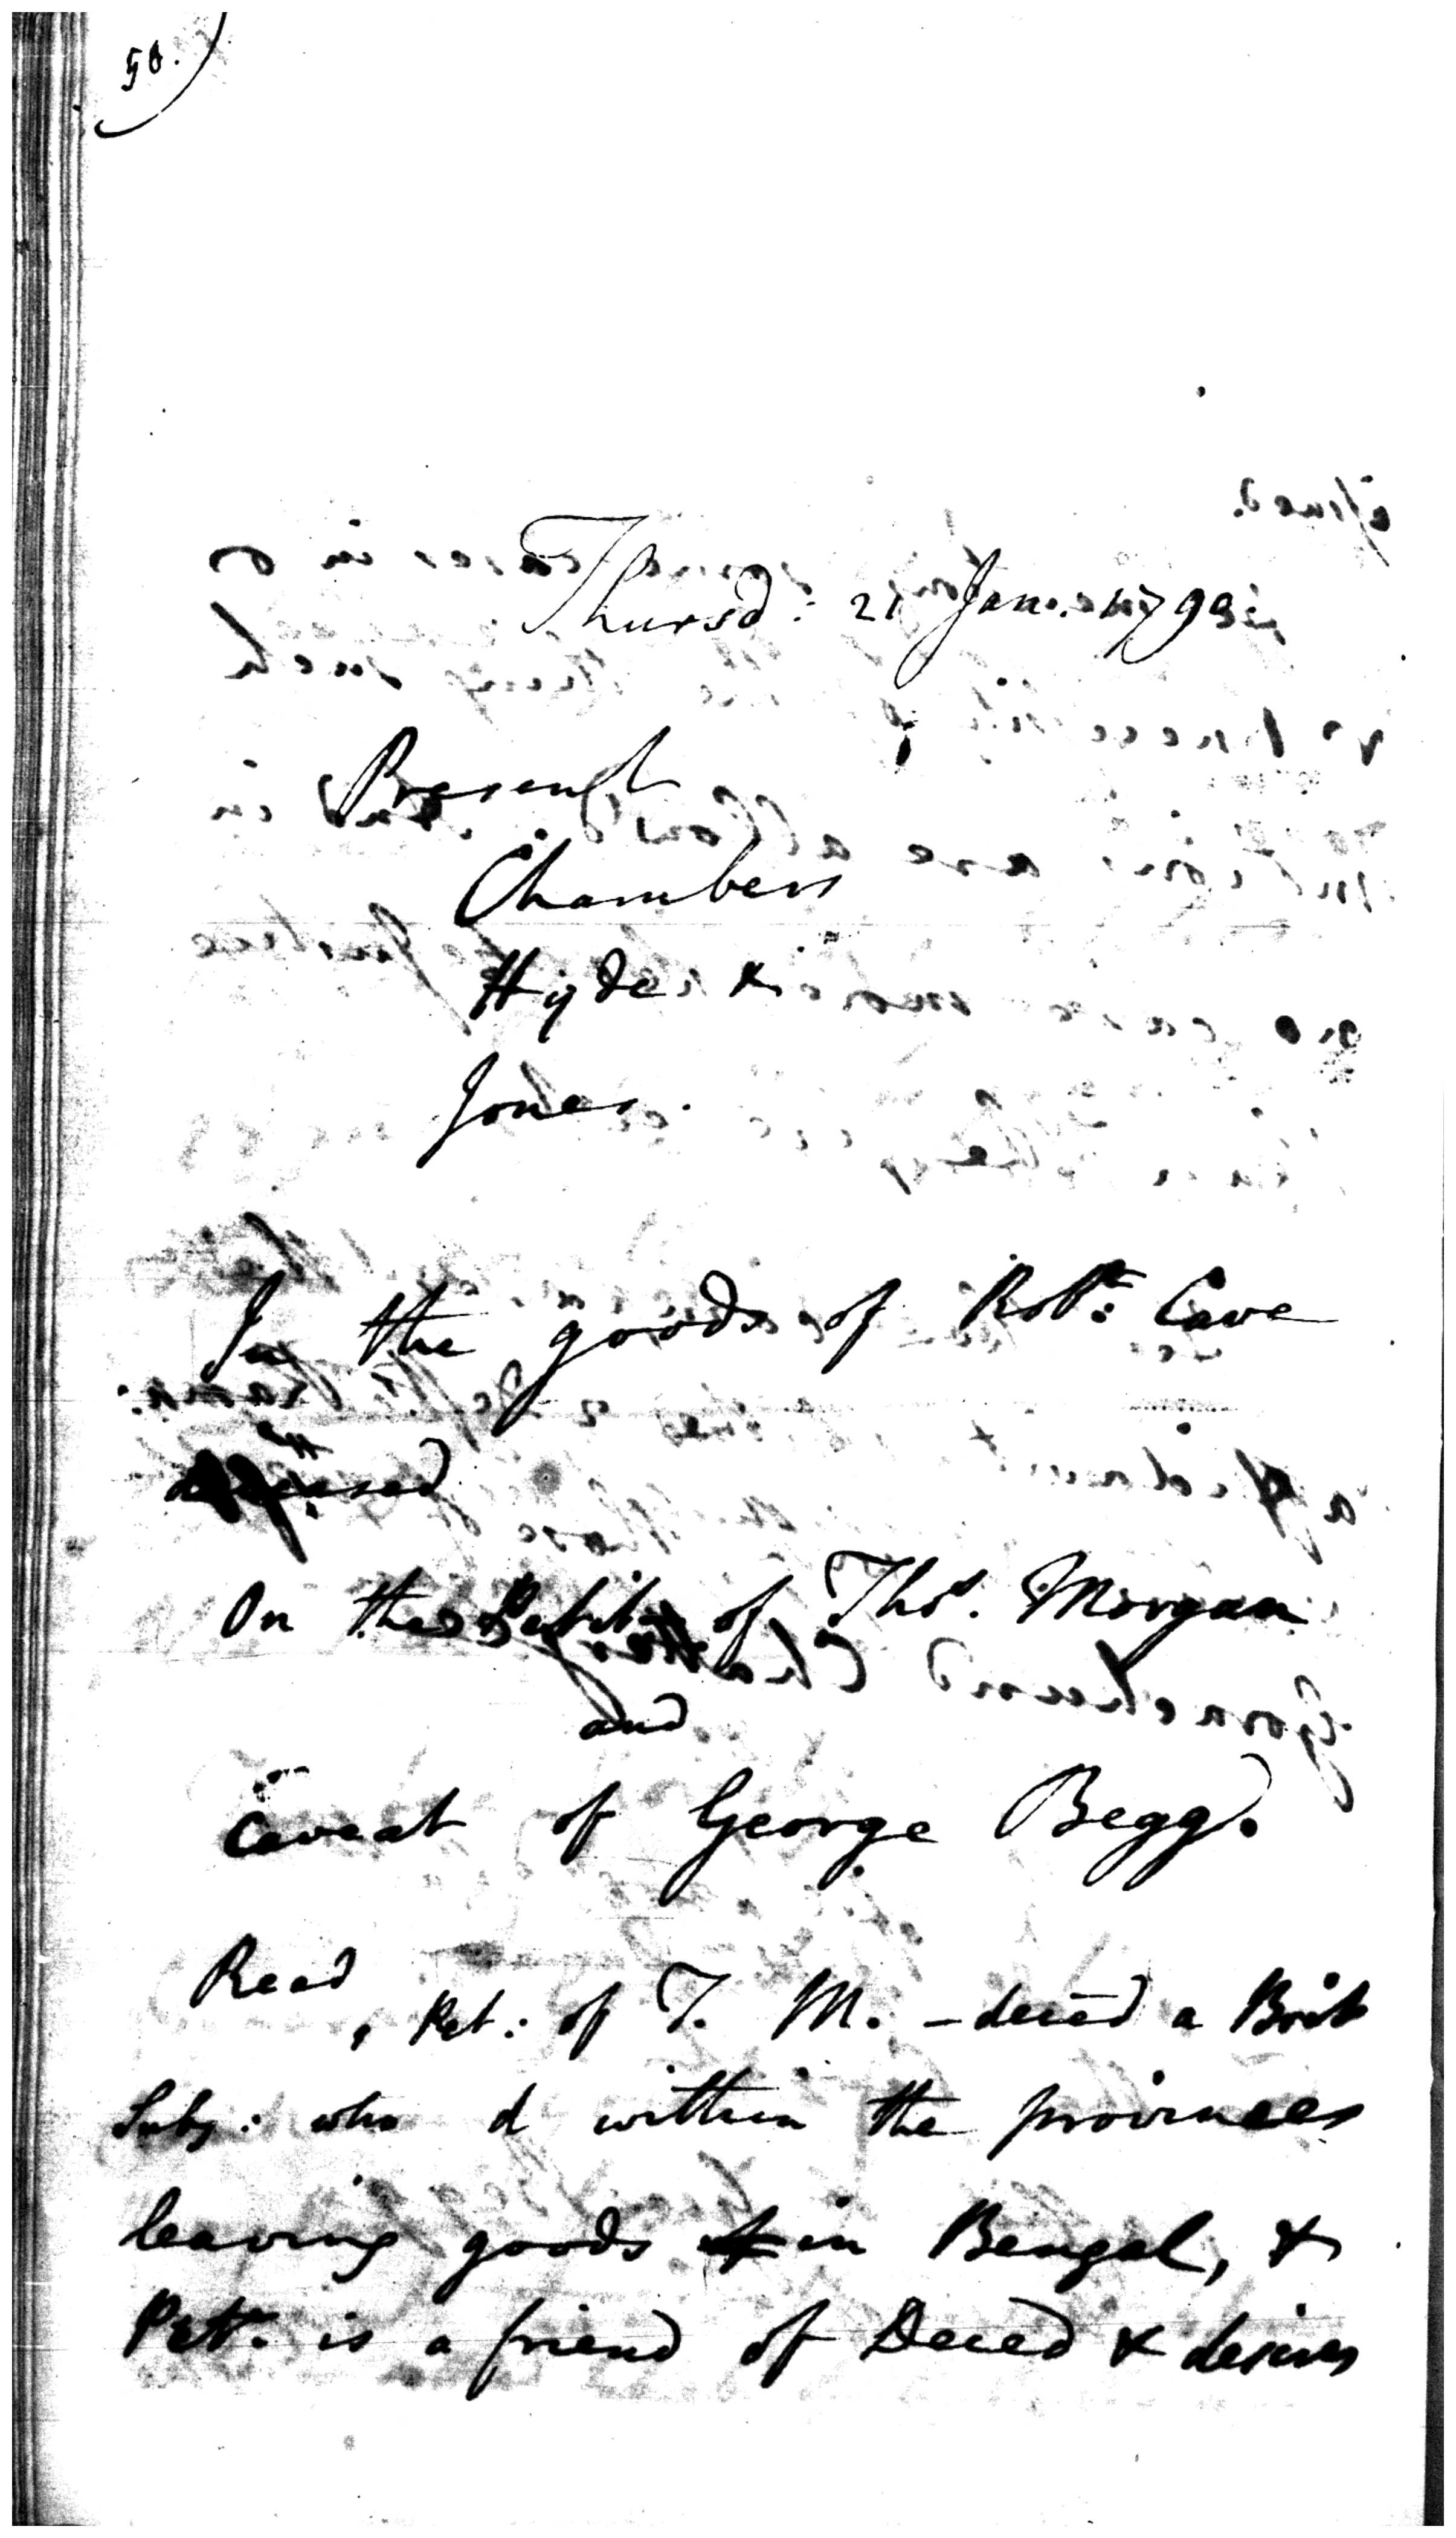 50.
Thursd: 21 Jan. 1790
Present
Chambers
Hyde &
Jones.
In the goods of Robt: Cave
deceased
On the Petit: of Thos. Morgan
and
Caveat of George Begg.
Read
, Pet: of T. M. - deced a Brit
Subj: who d within the provinces
leaving goods in Bengal, &
Petr. is a friend of Deced & desires